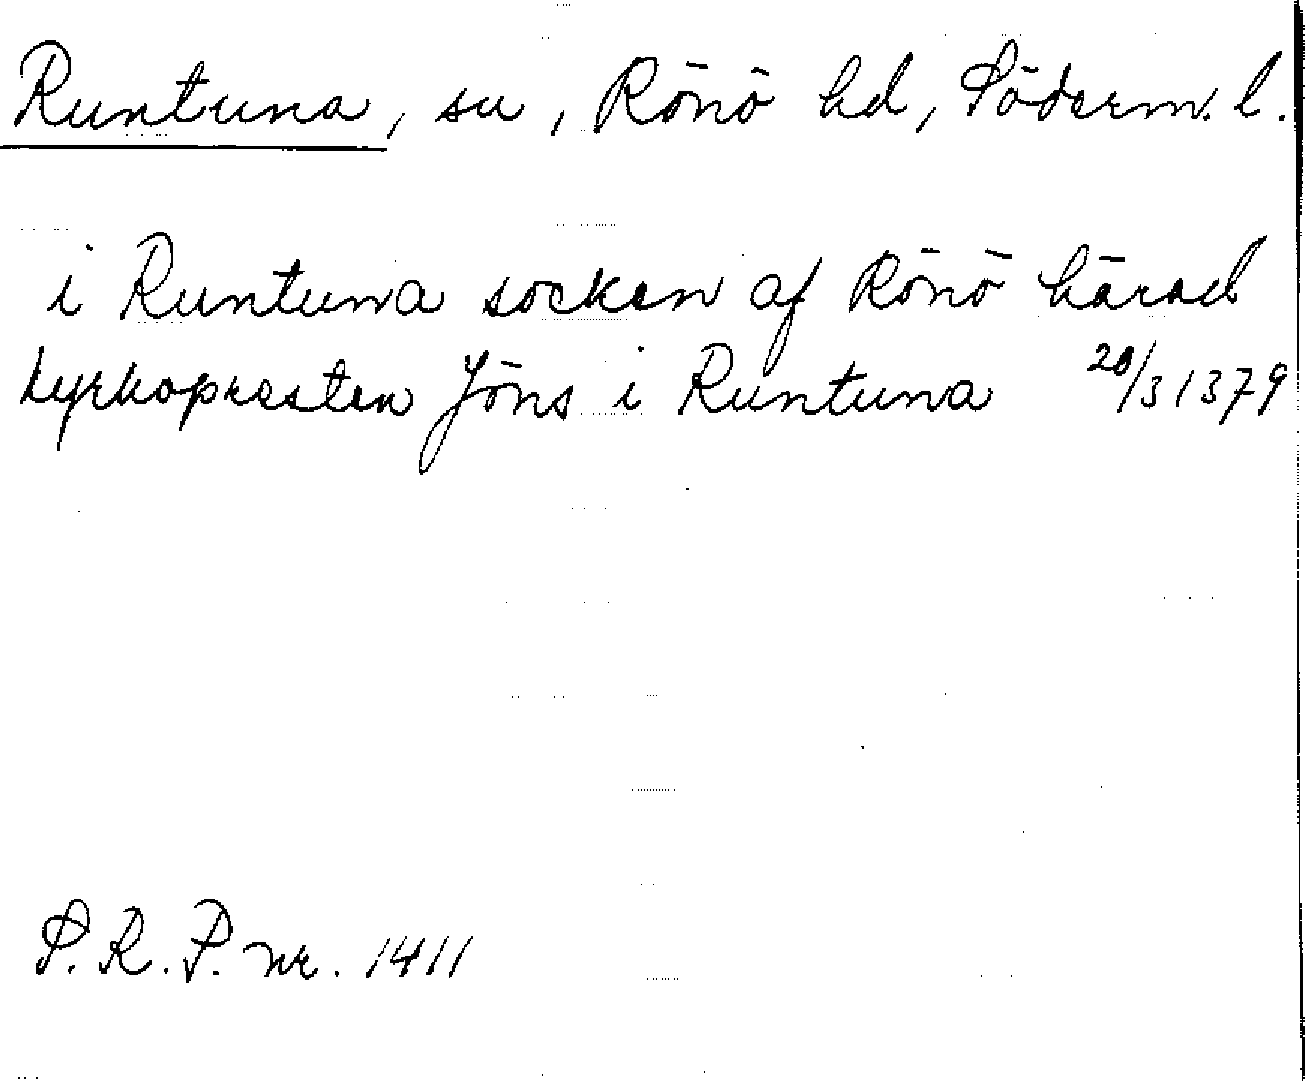 Runtuna, sn, Rönö hd, Söderm. l.
i Runtuna socken af Rönö härad
kyrkopresten Jöns i Runtuna 20/3 1379
S. R. P. nr. 1411